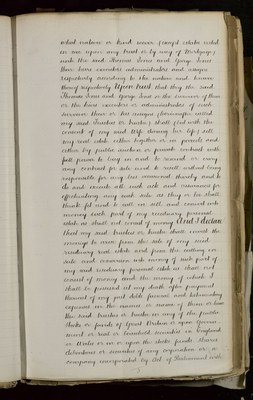 what nature or kind soever (except estate vested
in me upon any trust or by way of Mortgage)
unto the said Thomas Jones and George Jones
their heirs executors administrators and assigns
respectively according to the nature and tenure
thereof respectively Upon trust that they the said
Thomas Jones and George Jones or the survivor of them
or the heirs executors or administrators of such
survivor their or his assigns (hereinafter called
my said Trustees or trustee) shall (but with the
consent of my said Wife during her life) sell
my real estate either together or in parcels and
either by public auction or private contract with
full power to buy in and to rescind or vary
any contract for sale and to resell without being
responsible for any loss occasioned thereby and to
do and execute all such acts and assurances for
effectuating any such sale as they or he shall
think fit and to call in sell and convert into
money such part of my residuary personal
estate as shall not consist of money And I declare
that my said trustees or trustee shall out of the
moneys to arise from the sale of my said
real estate and from the calling in
sale and conversion into money of such part of
my said residuary personal estate as shall not
consist of money and the money of which I
shall be possessed at my death after payment
thereof of my just debts funeral and testamentary
expenses in the names or name of them or him
the said trustees or trustee in any of the public
stocks or funds of Great Britain or upon Govern-
ment or real or leasehold securities in England
or Wales or in or upon the stocks funds shares
debentures or securities of any corporation or
company incorporated by Act of Parliament with